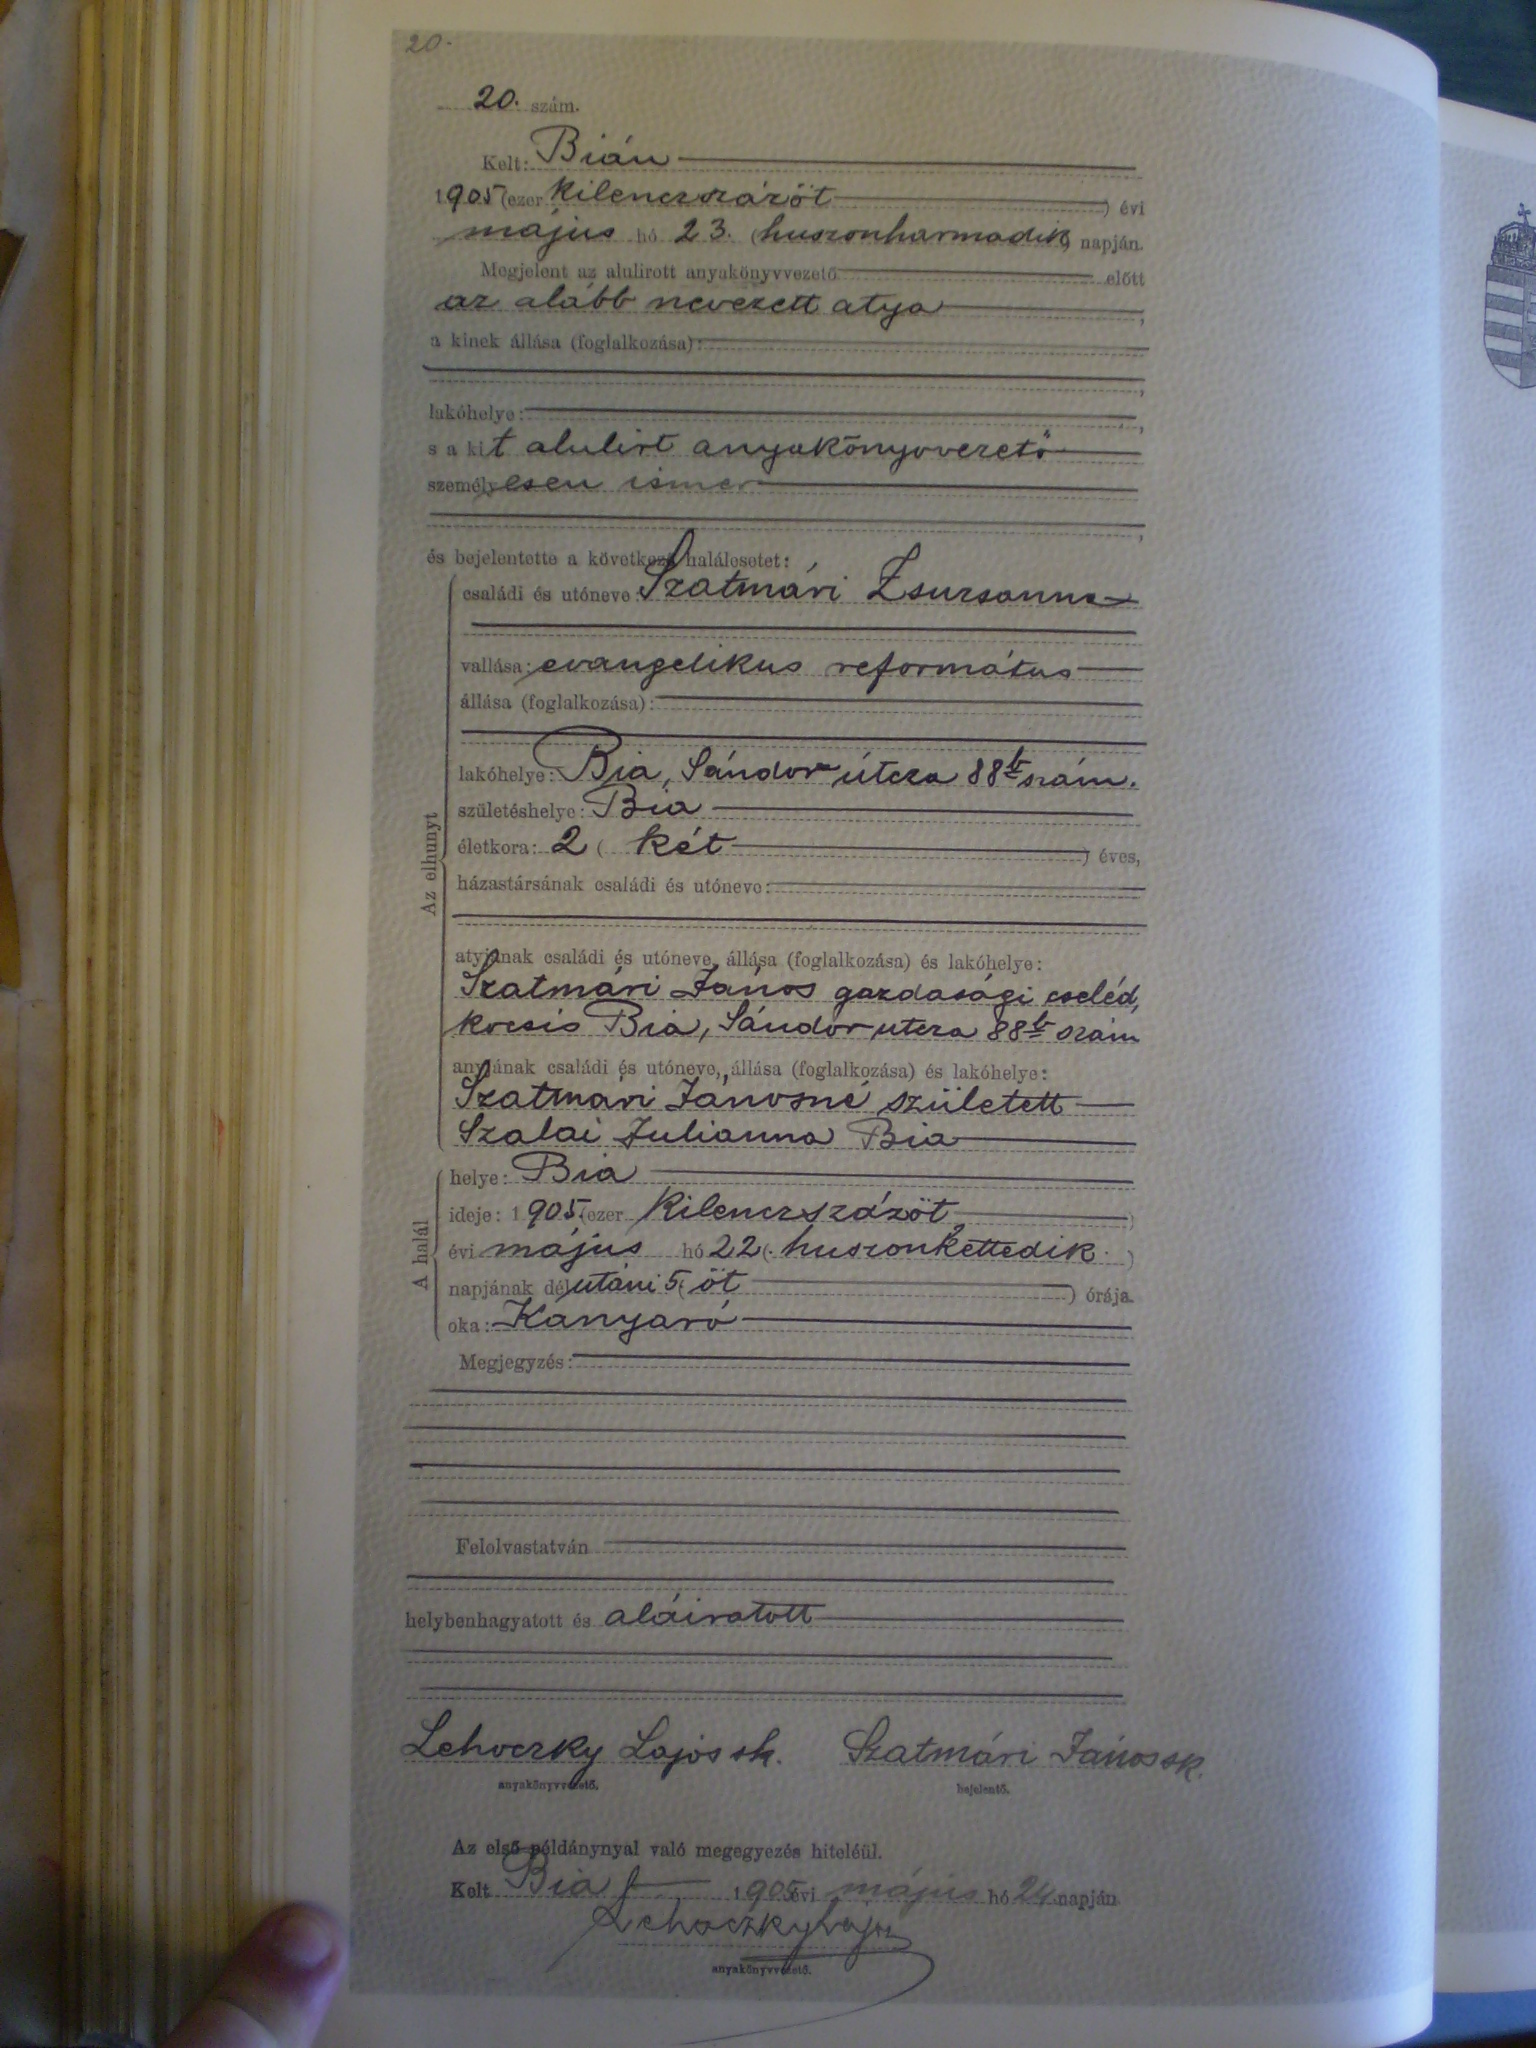 20.
20. szám.
Kelt: Bián
1905 (ezer kilenczszázöt) évi
május hó 23. (huszonharmadik) napján.
Megjelent az alulirott anyakönyvvezető előtt
az alább nevezett atya,
a kinek állása (foglalkozása):
,
lakóhelye: ,
s a kit alulirt anyakönyvvezető
személyesen ismer
,
és bejelentette a következő halálesetet:
Az elhunyt
családi és utóneve: Szatmári Zsuzsanna
vallása: evangelikus református
állása (foglalkozása):
lakóhelye: Bia, Sándor útcza 88ik szám.
születéshelye: Bia
életkora: 2 (két) éves,
házastársának családi és utóneve:
atyjának családi és utóneve, állása (foglalkozása) és lakóhelye:
Szatmári János gazdasági cseléd,
kocsis Bia, Sándor utcza 88ik szám
anyjának családi és utóneve, állása (foglalkozása) és lakóhelye:
Szatmári Jánosné született
Szalai Julianna Bia
A halál
helye: Bia
ideje: 1905. (ezer kilenczszázöt)
évi május hó 22 (huszonkettedik)
napjának délutáni 5 (öt) órája.
oka: Kanyaró
Megjegyzés:
Felolvastatván
helybenhagyatott és aláiratott
Lehoczky Lajos sk. Szatmári János sk.
anyakönyvvezető. bejelentő.
Az első példánynyal való megegyezés hiteléül.
Kelt Bia 1905 évi május hó 24. napján
Lehoczky Lajos
anyakönyvvezető.